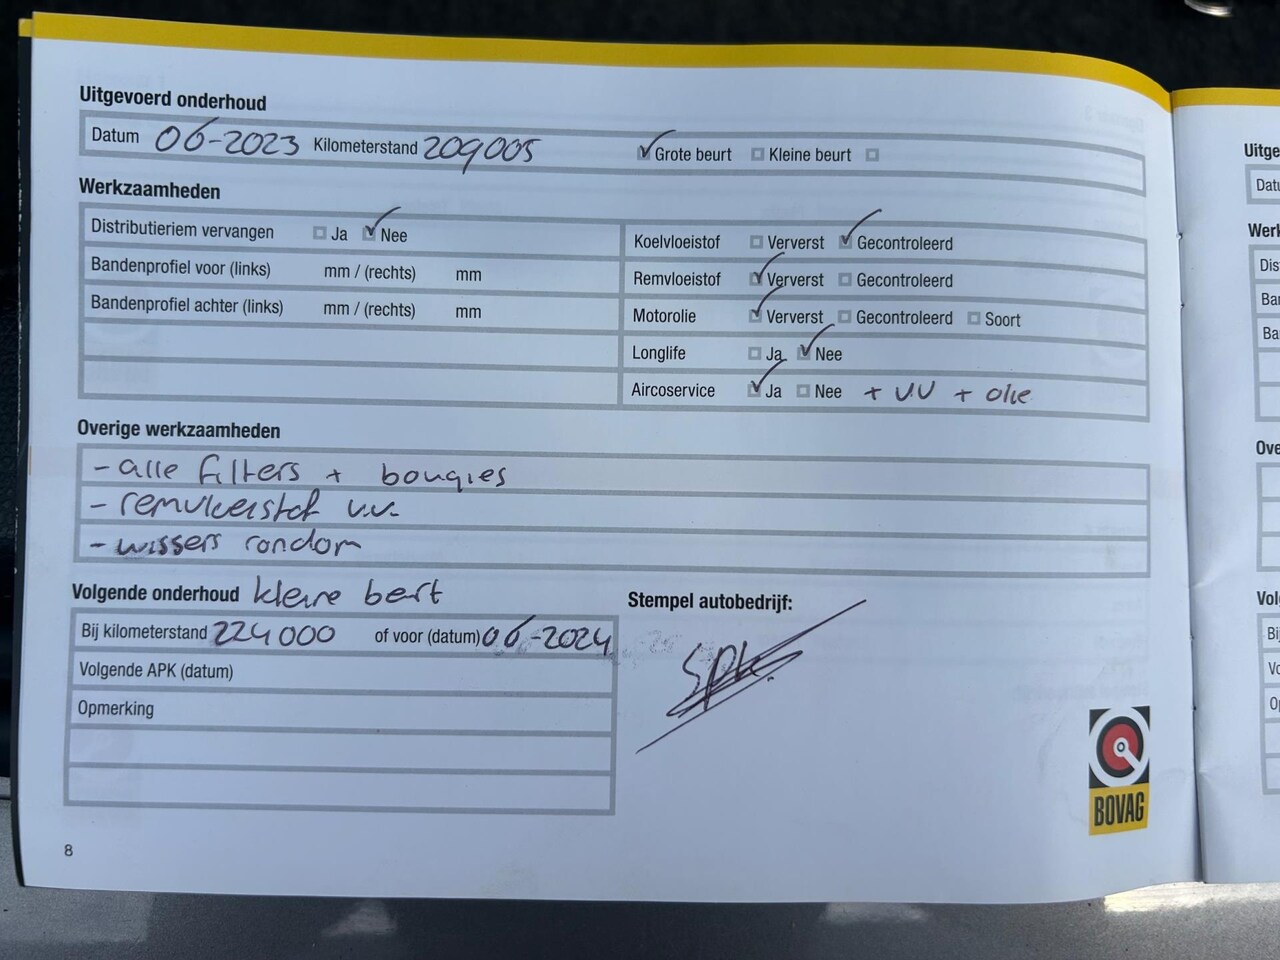 Uitgevoerd onderhoud
Datum 06-2023 Kilometerstand 209005 Grote beurt Kleine beurt
Werkzaamheden
Distributieriem vervangen Ja Nee
Bandenprofiel voor (links) mm / (rechts) mm
Bandenprofiel achter (links) mm / (rechts) mm
Koelvloeistof Ververst Gecontroleerd
Remvloeistof Ververst Gecontroleerd
Motorolie Ververst Gecontroleerd Soort
Longlife Ja Nee
Aircoservice Ja Nee + v.v + olie
Overige werkzaamheden
- alle filters + bougies
- remvloeistof v.v.
- wissers rondom
Volgende onderhoud kleine beurt
Bij kilometerstand 224000 of voor (datum) 06-2024
Volgende APK (datum)
Opmerking
Stempel autobedrijf:
BOVAG
8
Uitge
Datu
Werk
Dis
Ba
Ba
Ove
Vol
Bij
Vo
Op